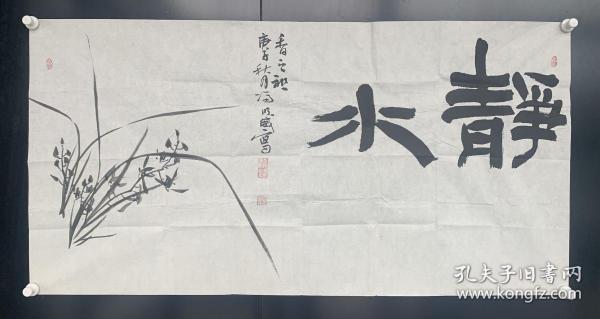 靜水
香之祖
庚子秋月冯
孔夫子旧书网
www.kongfz.com